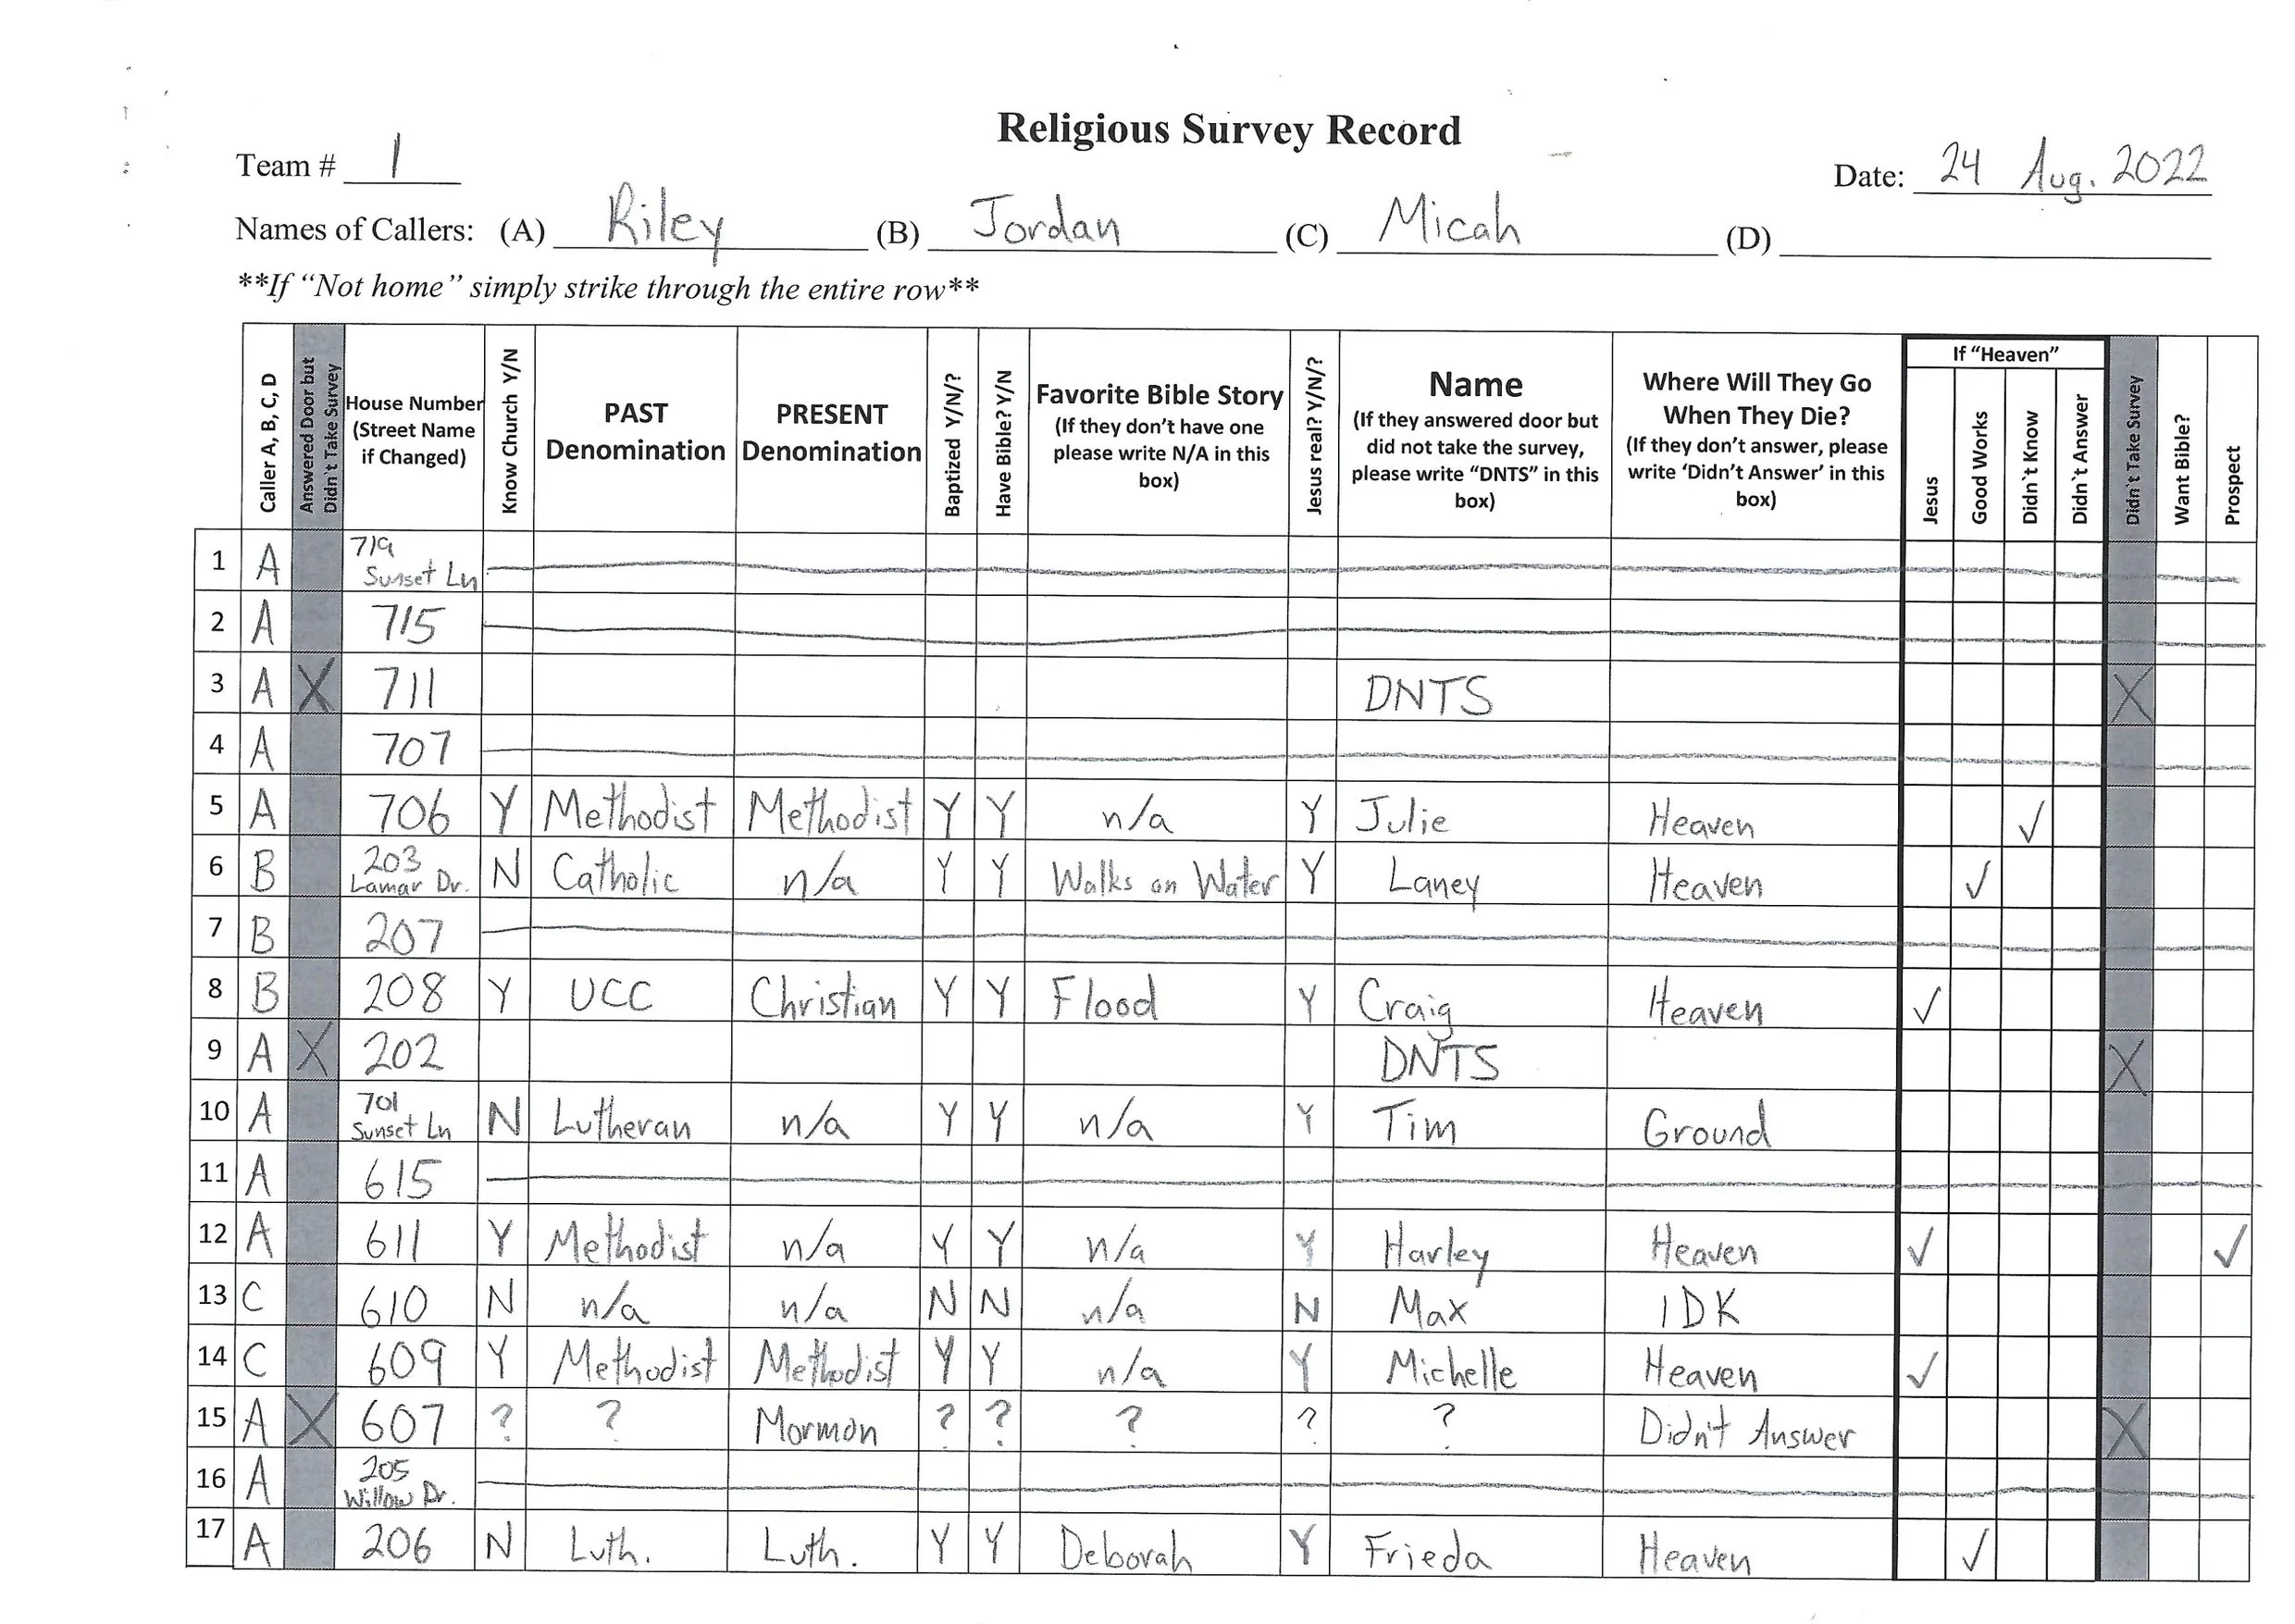 Religious Survey Record
Team # 1
Date: 24 Aug. 2022
Names of Callers: (A) Riley (B) Jordan (C) Micah (D)
**If “Not home” simply strike through the entire row**
Caller A, B, C, D
Answered Door but
Didn`t Take Survey
House Number
(Street Name
if Changed)
Know Church Y/N
PAST
Denomination
PRESENT
Denomination
Baptized Y/N/?
Have Bible? Y/N
Favorite Bible Story
(If they don’t have one
please write N/A in this
box)
Jesus real? Y/N/?
Name
(If they answered door but
did not take the survey,
please write “DNTS” in this
box)
Where Will They Go
When They Die?
(If they don’t answer, please
write ‘Didn’t Answer’ in this
box)
If “Heaven”
Jesus
Good Works
Didn`t Know
Didn`t Answer
Didn`t Take Survey
Want Bible?
Prospect
1 A 719
Sunset Ln
2 A 715
3 A X 711 DNTS X
4 A 707
5 A 706 Y Methodist Methodist Y Y n/a Y Julie Heaven ✓
6 B 203
Lamar Dr. N Catholic n/a Y Y Walks on Water Y Laney Heaven ✓
7 B 207
8 B 208 Y UCC Christian Y Y Flood Y Craig Heaven ✓
9 A X 202 DNTS X
10 A 701
Sunset Ln N Lutheran n/a Y Y n/a Y Tim Ground
11 A 615
12 A 611 Y Methodist n/a Y Y n/a Y Harley Heaven ✓ ✓
13 C 610 N n/a n/a N N n/a N Max IDK
14 C 609 Y Methodist Methodist Y Y n/a Y Michelle Heaven ✓
15 A X 607 ? ? Mormon ? ? ? ? ? Didn't Answer X
16 A 205
Willow Dr.
17 A 206 N Luth. Luth. Y Y Deborah Y Frieda Heaven ✓